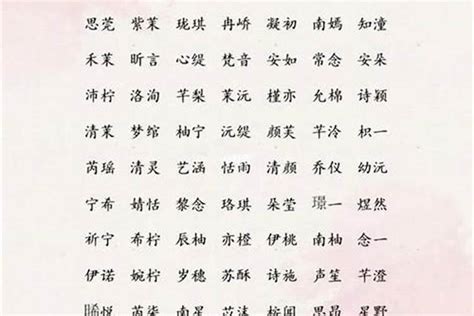 思莞 紫茉 珑琪 冉峤 凝初 南嫣 知潼
禾茉 昕言 心缇 梵音 安如 常念 安朵
沛柠 洛洵 芊梨 茉沅 槿亦 允棉 诗颖
清茉 梦绾 柚宁 沅缇 颜芙 芊泠 枳一
芮瑶 清灵 艺涵 恬雨 清颜 乔仪 幼沅
宁希 婧恬 黎念 珞琪 朵莹 璟一 煜然
祈宁 希柠 辰柚 亦橙 伊桃 南柚 念一
伊诺 婉柠 岁穗 苏酥 诗施 声笙 芊澄
悦 茵柒 南星 思昂 星野